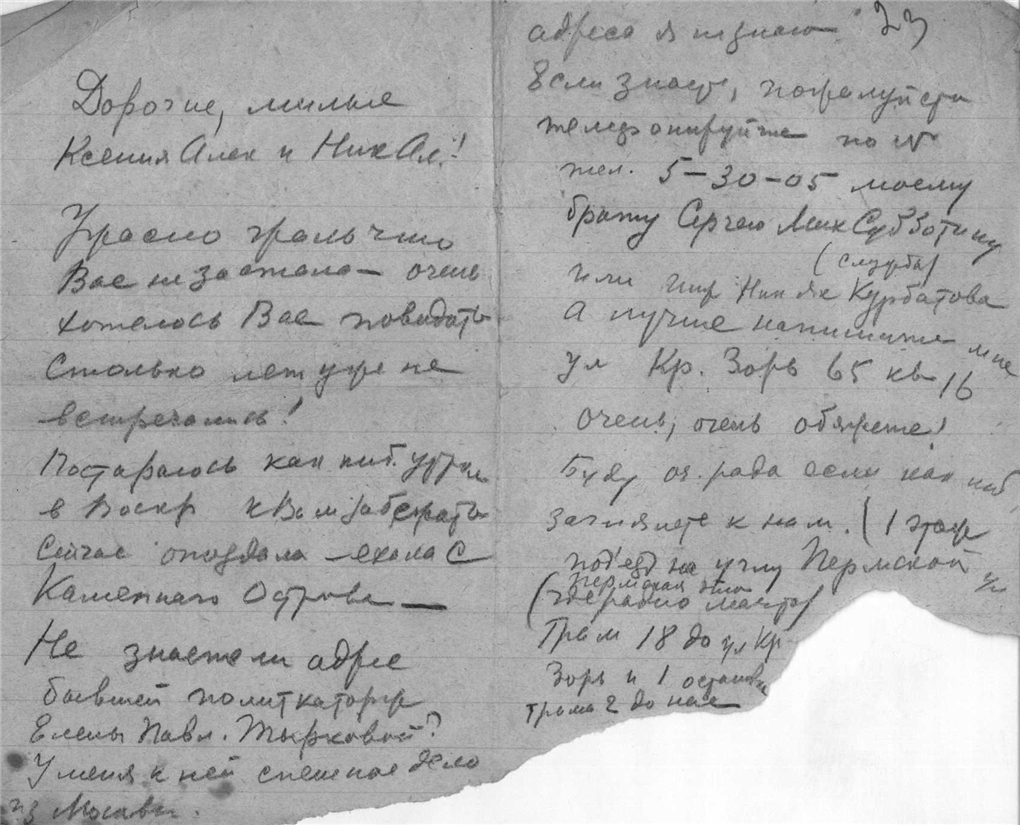 Дорогие, милые
Ксения Алек и Ник Ал.!
Ужасно жаль что
Вас не застала — очень
хотелось Вас повидать
Столько лет уже не
встречались!
Постараюсь как ниб. утром
в Воскр к Вам забежать
Сейчас опоздала — ехала с
Каменнаго Острова —
Не знаете ли адрес
бывшей политкаторж
Елены Павл. Тырковой?
У меня к ней спешное дело
из Москвы.
23
адреса я не знаю
Если знаете, пожалуйста
телефонируйте по №
тел. 5-30-05 моему
брату Сергею Мих Субботину
(служба)
или Ник Як Курбатова
А лучше напишите мне
ул Кр. Зорь 65 кв 16
очень, очень обяжете!
Буду оч. рада если как ниб
заглянете к нам. (1 этаж
под'езд на углу Пермской ул
Пермская
(где радио мачта)
Трам 18 до ул Кр
Зорь и 1 остановка
трама 2 до нас